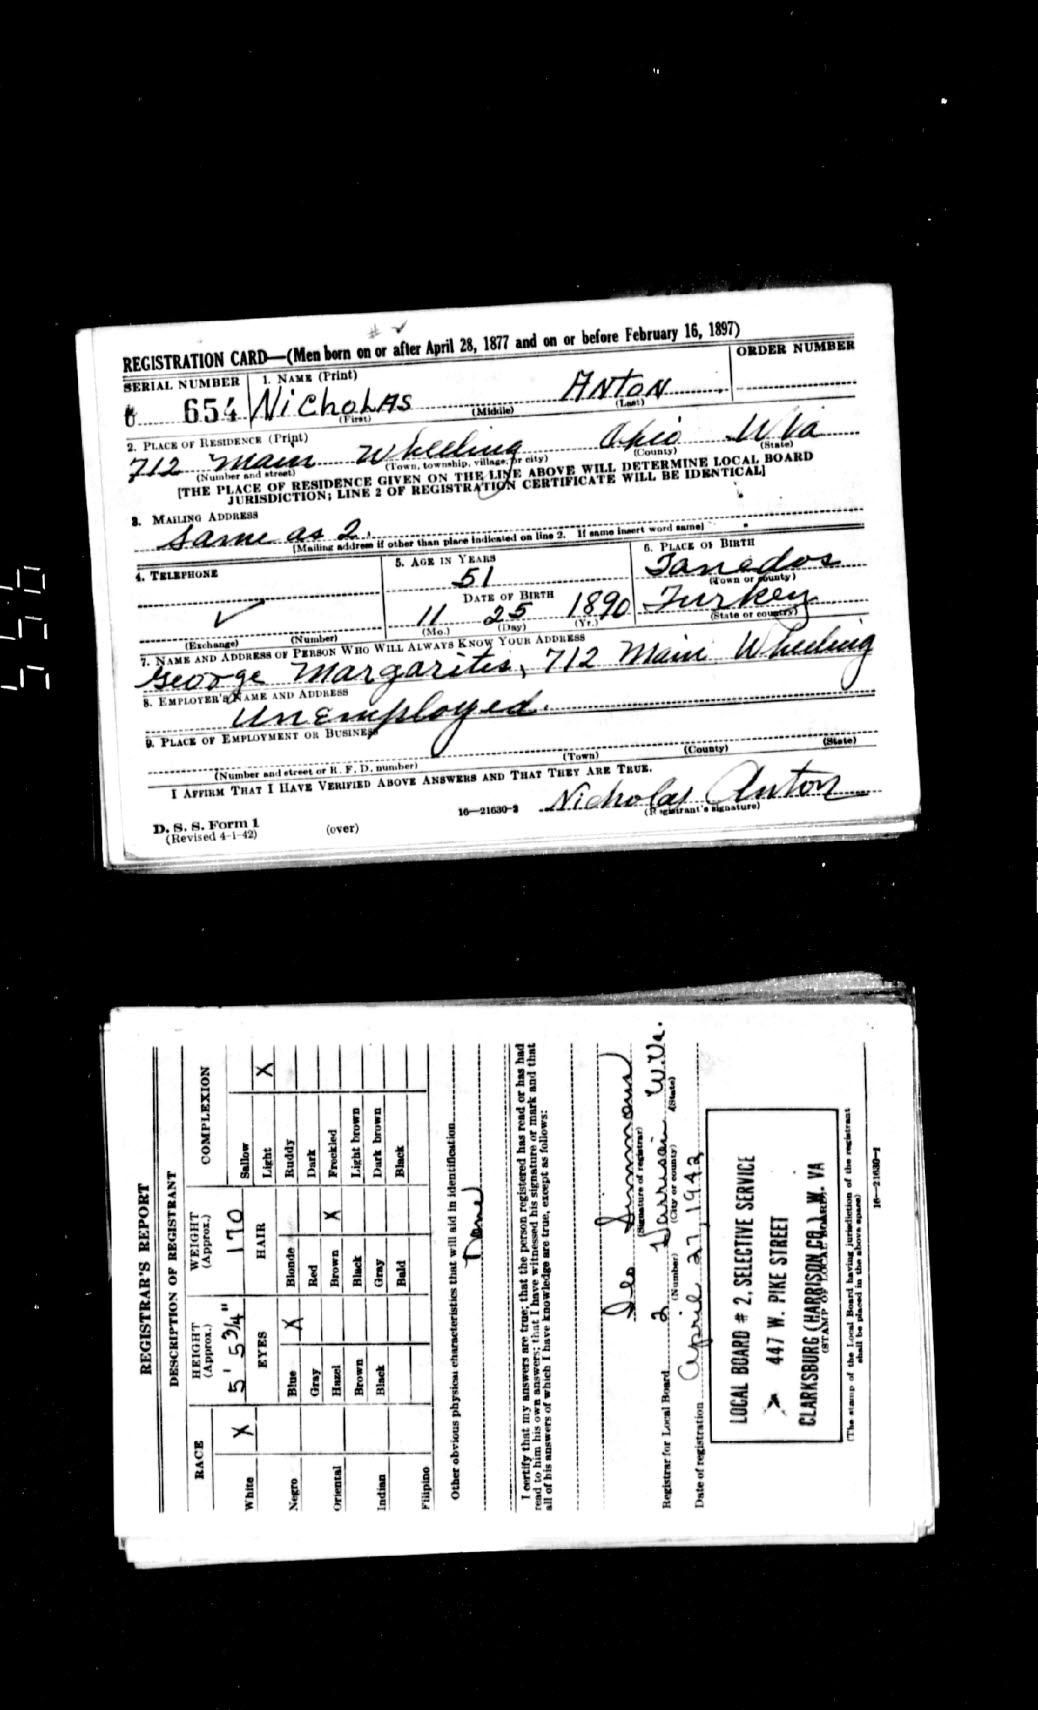 # ✓
REGISTRATION CARD—(Men born on or after April 28, 1877 and on or before February 16, 1897)
SERIAL NUMBER 1. NAME (Print) ORDER NUMBER
654 NICHOLAS ANTON
(First) (Middle) (Last)
2. PLACE OF RESIDENCE (Print)
712 Main Wheeling Ohio W Va
(Number and street) (Town, township, village, or city) (County) (State)
[THE PLACE OF RESIDENCE GIVEN ON THE LINE ABOVE WILL DETERMINE LOCAL BOARD
JURISDICTION; LINE 2 OF REGISTRATION CERTIFICATE WILL BE IDENTICAL]
3. MAILING ADDRESS
Same as 2.
[Mailing address if other than place indicated on line 2. If same insert word same]
4. TELEPHONE 5. AGE IN YEARS 6. PLACE OF BIRTH
51 Tanedos
(Town or county)
DATE OF BIRTH
✓ 11 25 1890 Turkey
(Exchange) (Number) (Mo.) (Day) (Yr.) (State or country)
7. NAME AND ADDRESS OF PERSON WHO WILL ALWAYS KNOW YOUR ADDRESS
George Margaritis, 712 Main Wheeling
8. EMPLOYER'S NAME AND ADDRESS
Unemployed.
9. PLACE OF EMPLOYMENT OR BUSINESS
(Number and street or R. F. D. number) (Town) (County) (State)
I AFFIRM THAT I HAVE VERIFIED ABOVE ANSWERS AND THAT THEY ARE TRUE.
Nicholas Anton
D. S. S. Form 1 16—21630-2 (Registrant's signature)
(Revised 4-1-42) (over)
REGISTRAR'S REPORT
DESCRIPTION OF REGISTRANT
RACE HEIGHT (Approx.) WEIGHT (Approx.) COMPLEXION
White X 5' 5 3/4" 170 Sallow
EYES HAIR Light X
Negro Blue X Blonde Ruddy
Gray Red Dark
Oriental Hazel Brown X Freckled
Brown Black Light brown
Indian Black Gray Dark brown
Filipino Bald Black
Other obvious physical characteristics that will aid in identification
None
I certify that my answers are true; that the person registered has read or has had
read to him his own answers; that I have witnessed his signature or mark and that
all of his answers of which I have knowledge are true, except as follows:
Simmons
(Signature of registrar)
Registrar for Local Board 2 Harrison W.Va.
(Number) (City or county) (State)
Date of registration April 27, 1942
LOCAL BOARD # 2, SELECTIVE SERVICE
447 W. PIKE STREET
CLARKSBURG (HARRISON CO.) W. VA
(STAMP OF LOCAL BOARD)
(The stamp of the Local Board having jurisdiction of the registrant
shall be placed in the above space)
16—21630-1